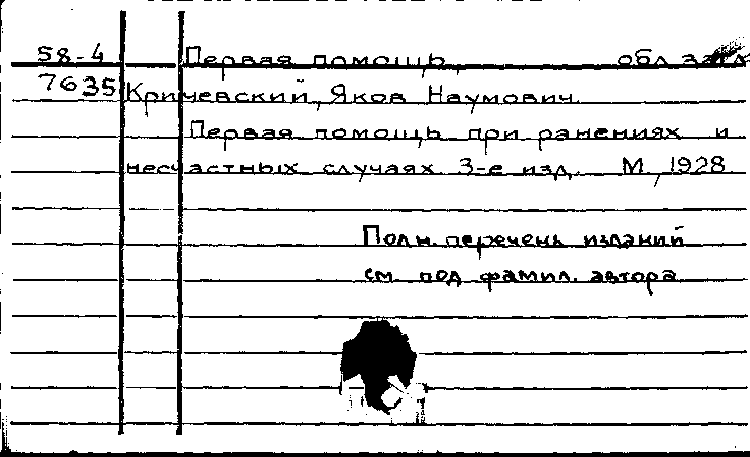 58-4 Первая помощь, обл. загл.
7635 Кричевский, Яков Наумович.
Первая помощь при ранениях и
несчастных случаях. 3-е изд. М., 1928
Полн. перечень изданий
см. под фамил. автора